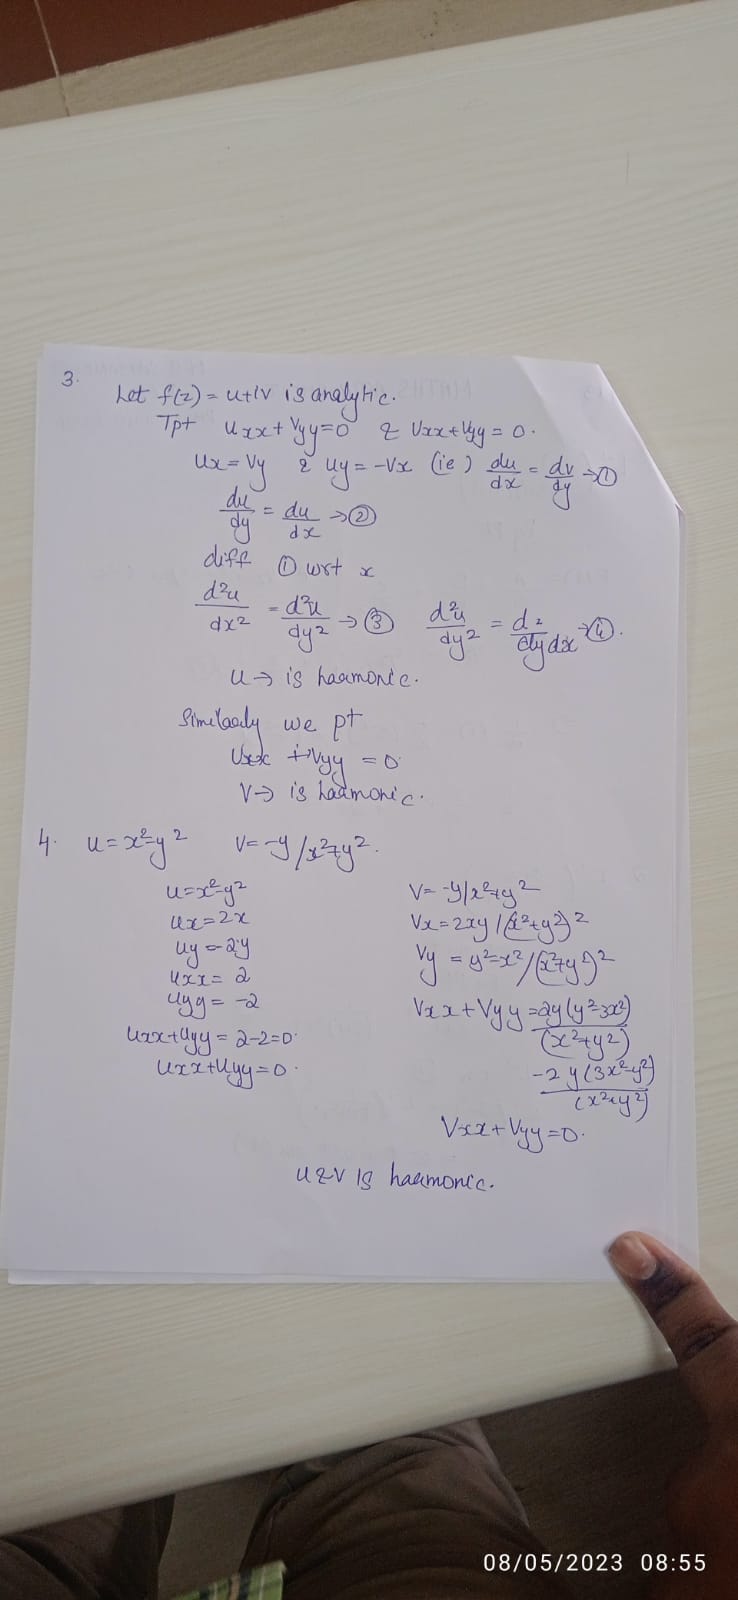 3.
Let f(z) = u+iv is analytic.
Tpt uxx + Vyy=0 & Vxx+Vyy = 0.
ux = Vy & uy = -Vx (ie) du/dx = dv/dy → ①
du/dy = du/dx → ②
diff ① wrt x
d²u/dx² = d²u/dy² → ③ d²u/dy² = d²/dydx → ④.
u → is harmonic.
Similarly we pt
Vxx + Vyy = 0
V → is harmonic.
4. u = x²-y² V= -y/x²+y².
u=x²-y² V= -y/x²+y²
ux=2x Vx=2xy/(x²+y²)²
uy=-2y Vy = y²-x²/(x²+y²)²
uxx= 2
uyy= -2 Vxx+Vyy = 2y(y²-3x²)/(x²+y²)
uxx+uyy = 2-2=0 -2y(3x²-y²)/(x²+y²)
uxx+uyy=0.
Vxx+Vyy=0.
u&v is harmonic.
08/05/2023 08:55